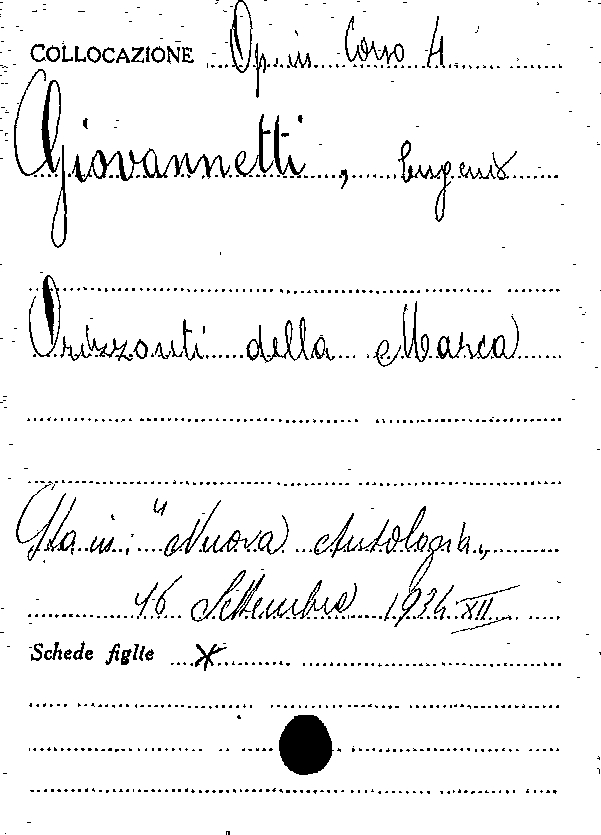 COLLOCAZIONE Op. in Corso 4
Giovannetti, Eugenio
Orizzonti della Marca
Sta in: "Nuova Antologia„
16 Settembre 1934 XII
Schede figlie X